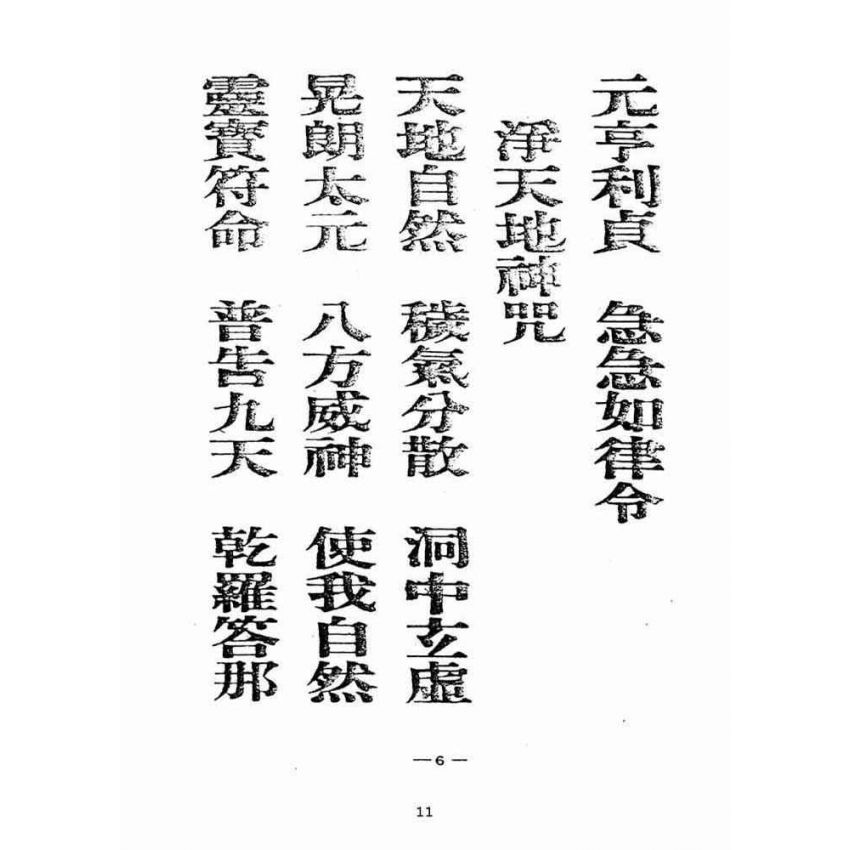 元亨利貞　急急如律令
淨天地神咒
天地自然　穢氣分散　洞中玄虛
晃朗太元　八方威神　使我自然
靈寶符命　普告九天　乾羅答那
—6—
11